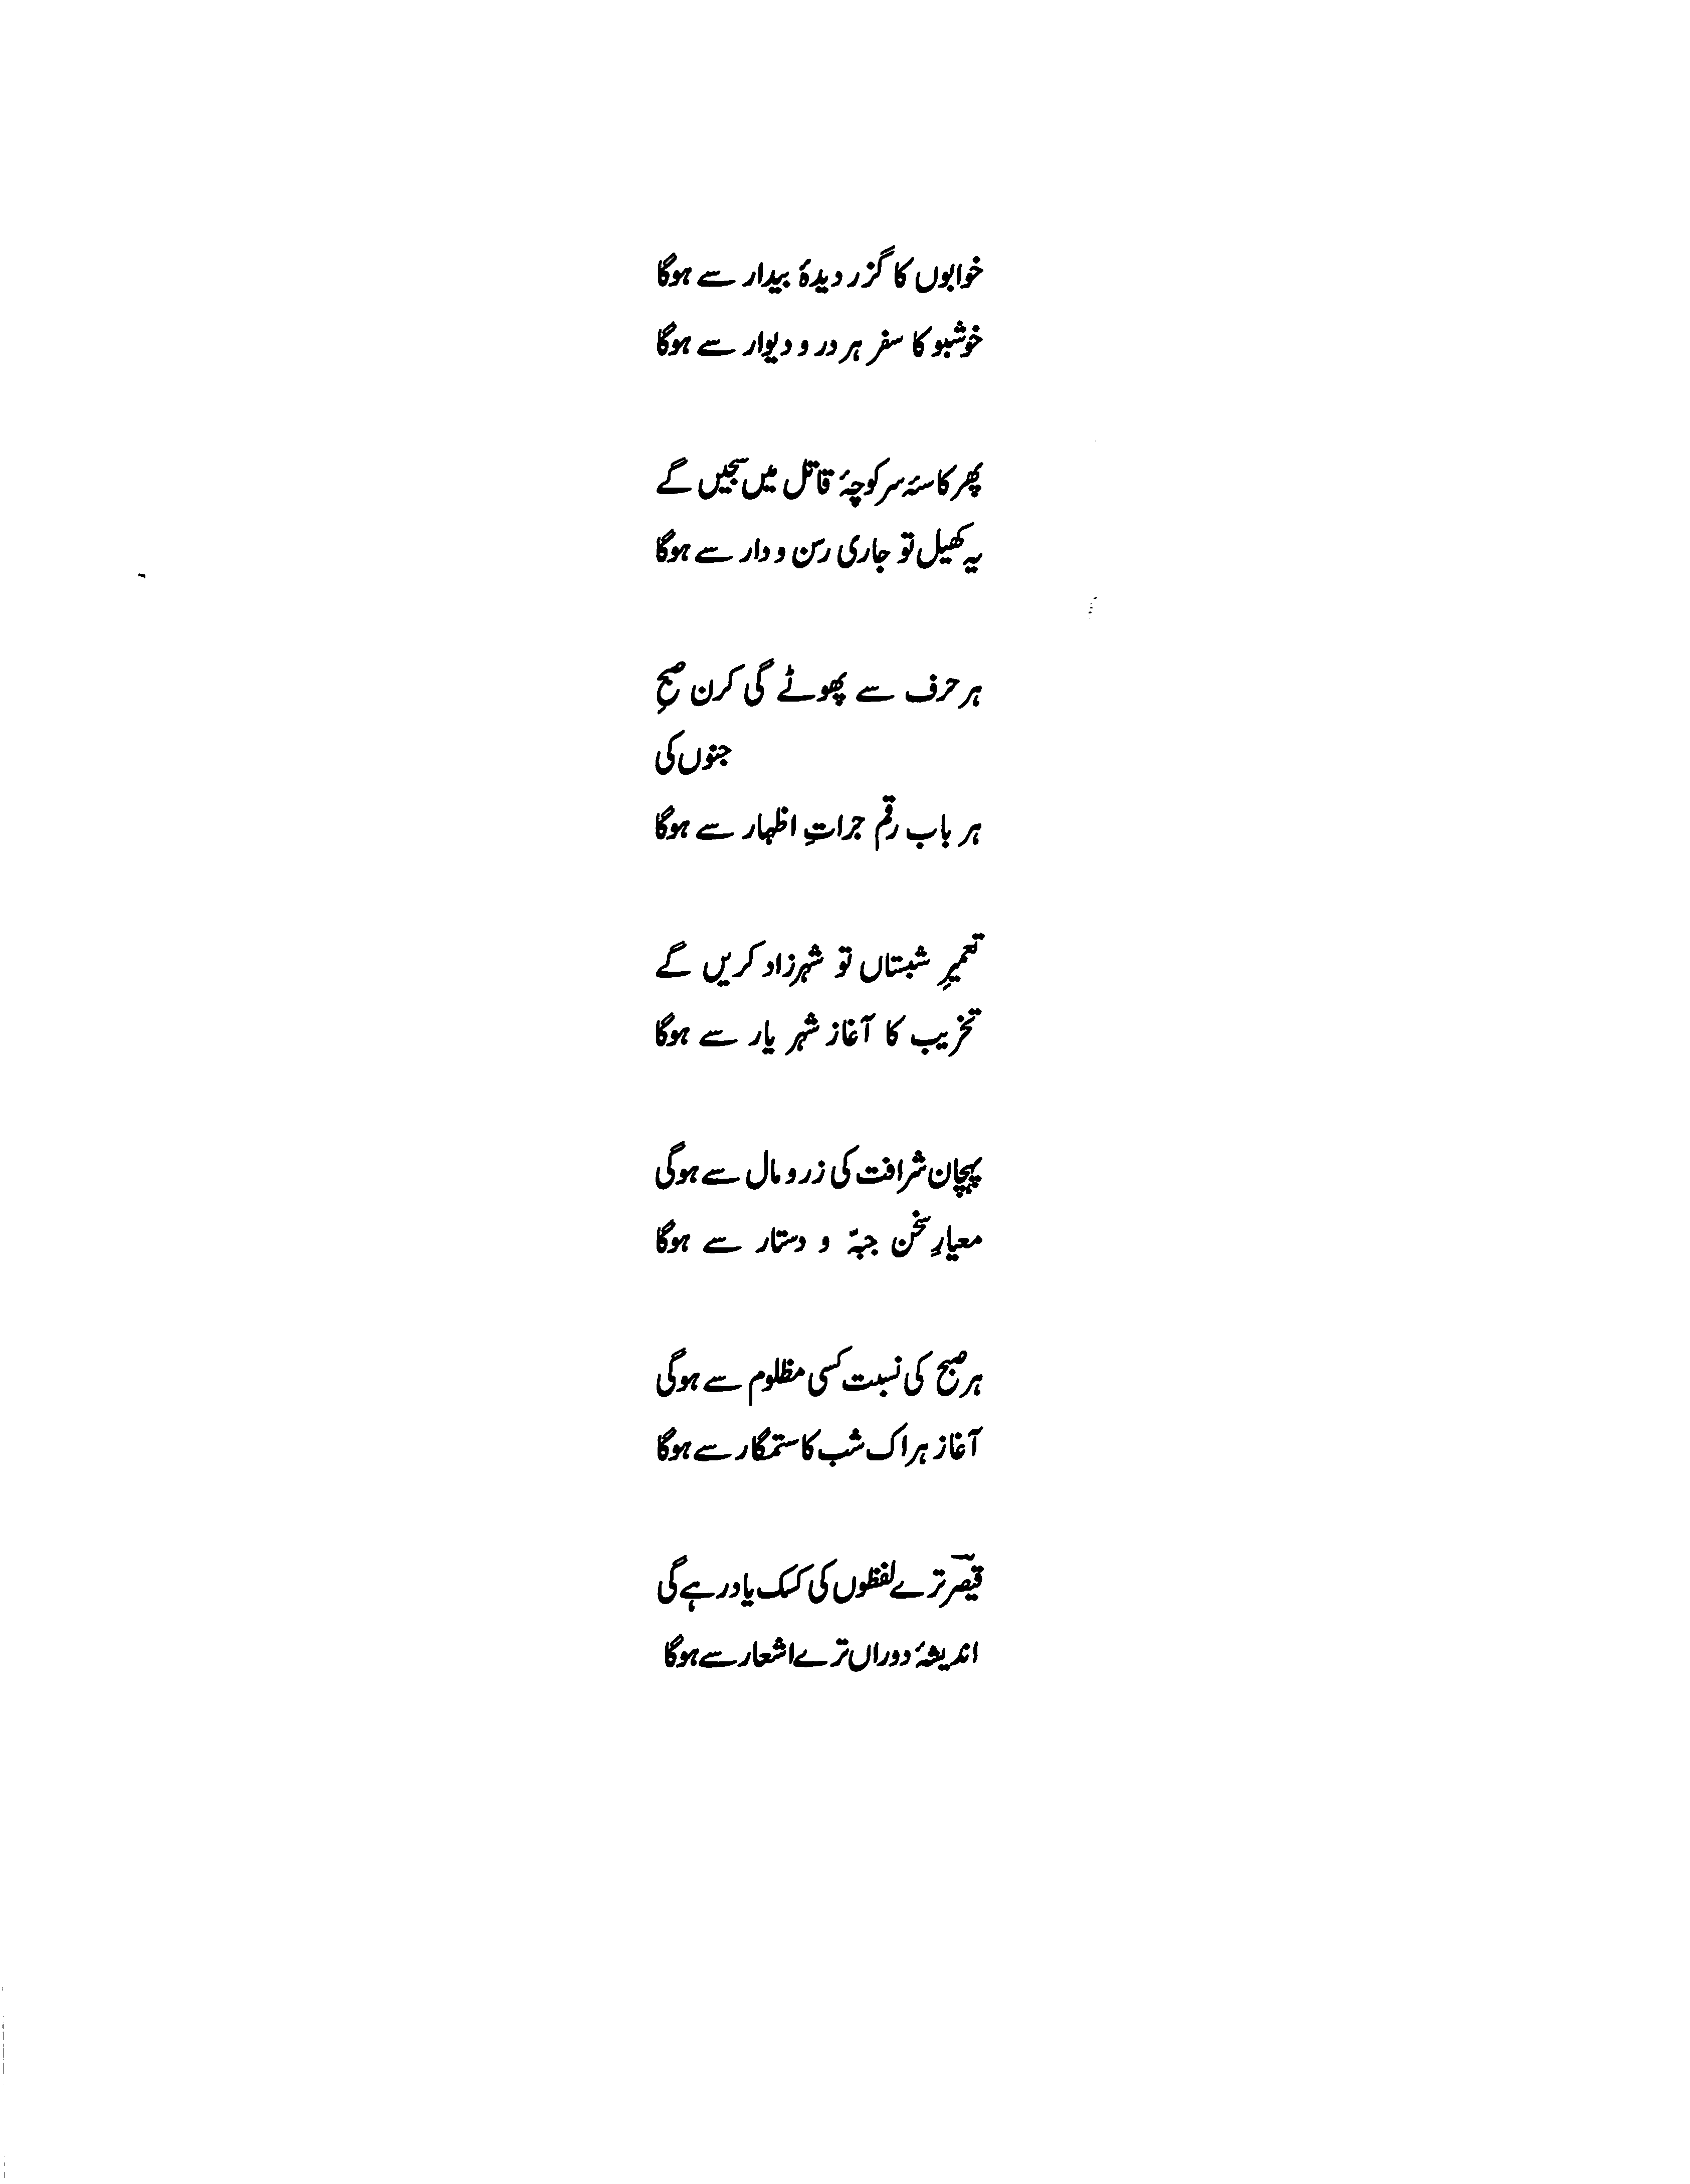 خوابوں کا گزر دیدۂ بیدار سے ہوگا
خوشبو کا سفر ہر در و دیوار سے ہوگا
پھر کاسۂ سر کوچۂ قاتل میں سجیں گے
یہ کھیل تو جاری رسن و دار سے ہوگا
ہر حرف سے پھوٹے گی کرن صبحِ
جنوں کی
ہر باب رقم جراتِ اظہار سے ہوگا
تعمیرِ شبستاں تو شہرزاد کریں گے
تخریب کا آغاز شہر یار سے ہوگا
پہچان شرافت کی زر و مال سے ہوگی
معیارِ سخن جبہّ و دستار سے ہوگا
ہر صبح کی نسبت کسی مظلوم سے ہوگی
آغاز ہر اک شب کا ستمگار سے ہوگا
قیصرؔ ترے لفظوں کی کسک یاد رہے گی
اندیشۂ دوراں ترے اشعار سے ہوگا